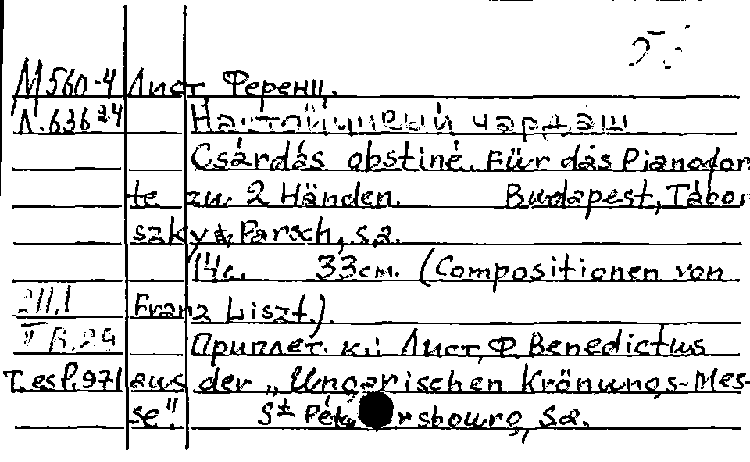 М560-4 Лист Ференц.
Л.636 24 Настойчивый чардаш
Csárdás obstiné. Für das Pianofor
te zu 2 Händen. Budapest, Tábor
szky & Parsch, s.a.
14c. 33см. (Compositionen von
III.1 Franz Liszt.).
Приплет. к.: Лист, Ф. Benedictus
T.esp.971 aus der „Ungarischen Krönungs-Mes-
se". St Pétersbourg, s.a.